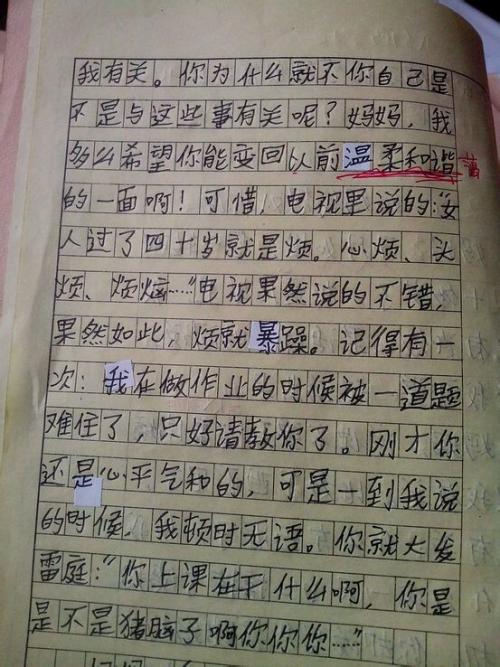 我有关。你为什么就不你自己是
不是与这些事有关呢？妈妈，我
多么希望你能变回以前温柔和谐
的一面啊！可惜，电视里说的：“女
人过了四十岁就是烦。心烦、头
烦、烦恼……”电视果然说的不错，
果然如此，烦就暴躁。记得有一
次：我在做作业的时候被一道题
难住了，只好请教你了。刚才你
还是心平气和的，可是一到我说
的时候，我顿时无语。你就大发
雷庭：“你上课在干什么啊，你是
是不是猪脑子啊你你你……”